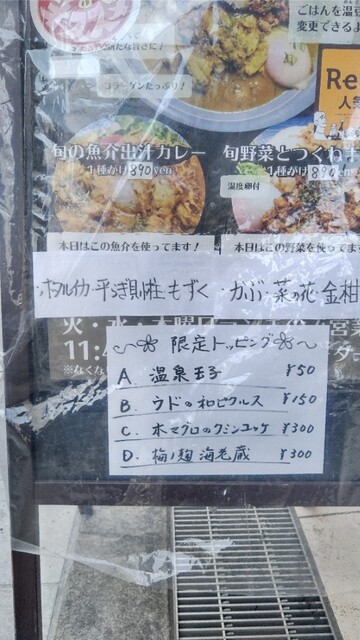 ごはんを温豆
変更できるよ
コラーゲンたっぷり！
Re
人
旬の魚介出汁カレー
1種がけ 890yen
旬野菜とつくね
1種がけ 890
温度卵付
本日はこの魚介を使ってます！
本日はこの野菜を使ってます
ホタルイカ・平らぎ貝柱・もずく
・かぶ・菜の花・金柑
火・水・木曜日
11:
※なくな
限定トッピング
A. 温泉玉子 ¥50
B. ウドの和ピクルス ¥150
C. 本マグロのクミンユッケ ¥300
D. 梅ノ麹 海老蔵 ¥300